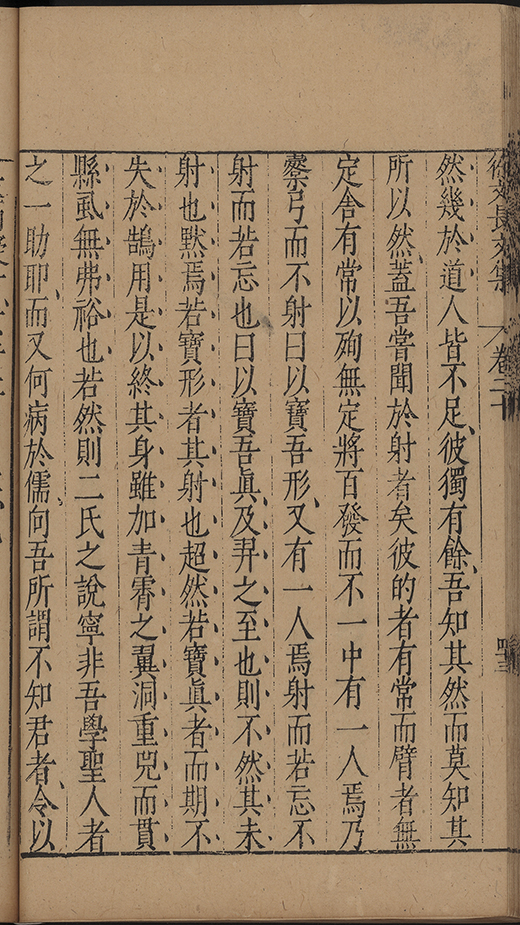 徐文長文集 卷二十
然幾於道人皆不足彼獨有餘吾知其然而莫知其
所以然蓋吾嘗聞於射者矣彼的者有常而臂者無
定舍有常以殉無定將百發而不一中有一人焉乃
櫜弓而不射曰以寶吾形又有一人焉射而若忘不
射而若忘也曰以寶吾眞及羿之至也則不然其未
射也默焉若寶形者其射也超然若寶眞者而期不
失於鵠用是以終其身雖加青霄之翼洞重兕而貫
縣虱無弗裕也若然則二氏之說寧非吾學聖人者
之一助耶而又何病於儒向吾所謂不知君者令以